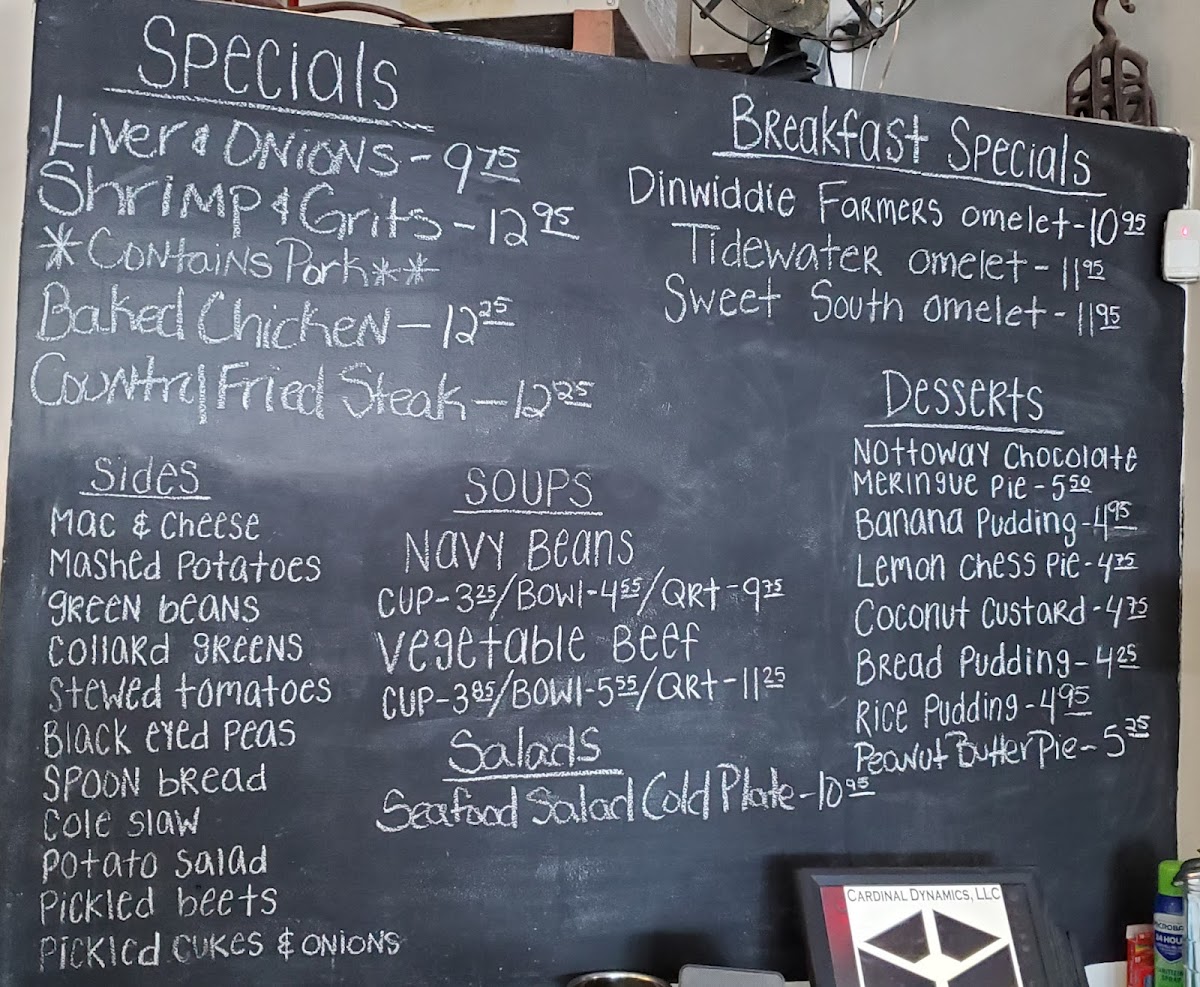 Specials
Liver & Onions - 9 75
Shrimp & Grits - 12 95
*Contains Pork**
Baked Chicken - 12 25
Country Fried Steak - 12 25
Breakfast Specials
Dinwiddie Farmers omelet - 10 95
Tidewater omelet - 11 95
Sweet South omelet - 11 95
Sides
Mac & Cheese
Mashed Potatoes
green beans
collard greens
Stewed tomatoes
Black eyed Peas
Spoon bread
Cole slaw
Potato salad
Pickled beets
Pickled cukes & onions
Soups
Navy Beans
Cup-3 25/Bowl-4 55/Qrt-9 75
Vegetable Beef
Cup-3 85/Bowl-5 55/Qrt-11 25
Salads
Seafood Salad Cold Plate-10 95
Desserts
Nottoway Chocolate
Meringue Pie-5 50
Banana Pudding-4 95
Lemon Chess Pie-4 75
Coconut Custard-4 75
Bread Pudding-4 25
Rice Pudding-4 95
Peanut Butter Pie-5 25
CARDINAL DYNAMICS, LLC
24 HOUR